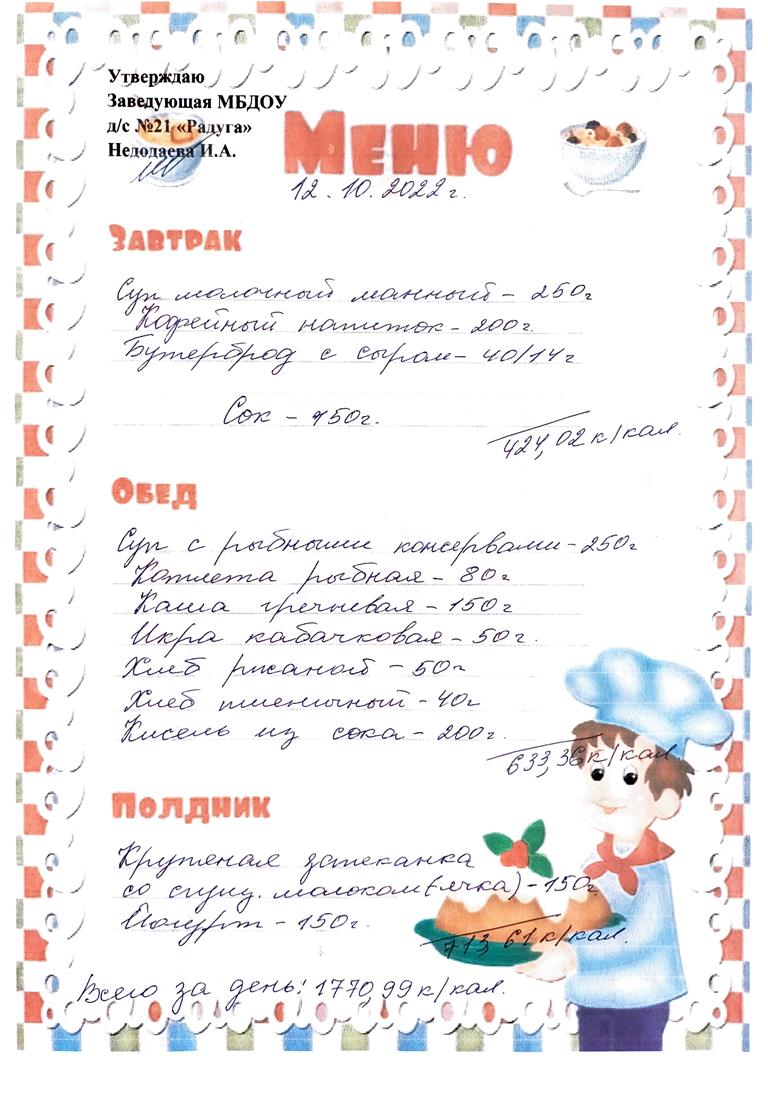 Утверждаю
Заведующая МБДОУ
д/с №21 «Радуга»
Недодаева И.А.
Меню
12.10.2022г.
Завтрак
Суп молочный манный - 250г
Кофейный напиток - 200г.
Бутерброд с сыром - 40/14г
Сок - 150г.
424,02 к/кал.
Обед
Суп с рыбными консервами - 250г
Котлета рыбная - 80г
Каша гречневая - 150г
Икра кабачковая - 50г.
Хлеб ржаной - 50г
Хлеб пшеничный - 40г
Кисель из сока - 200г.
633,36 к/кал.
Полдник
Крупяная запеканка
со сгущ. молоком (ячка) - 150г.
Йогурт - 150г.
713,61 к/кал.
Всего за день: 1770,99 к/кал.